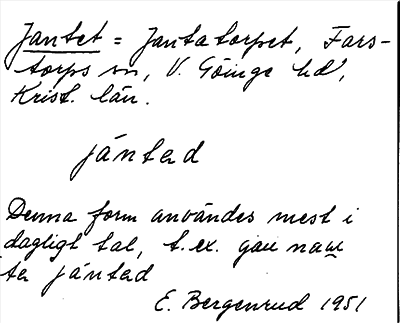 Jantet = Jantatorpet, Fars-
torps sn, V. Göinge hd,
Krist. län.
jäntad
Denna form användes mest i
dagligt tal, t. ex. gau naw
te jäntad
E. Bergenrud 1951